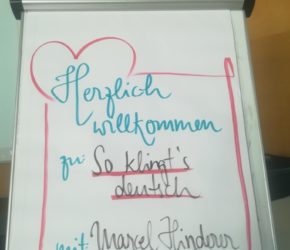 Herzlich
willkommen
zu: So klingt's
deutsch
mit: Marcel Hinderer